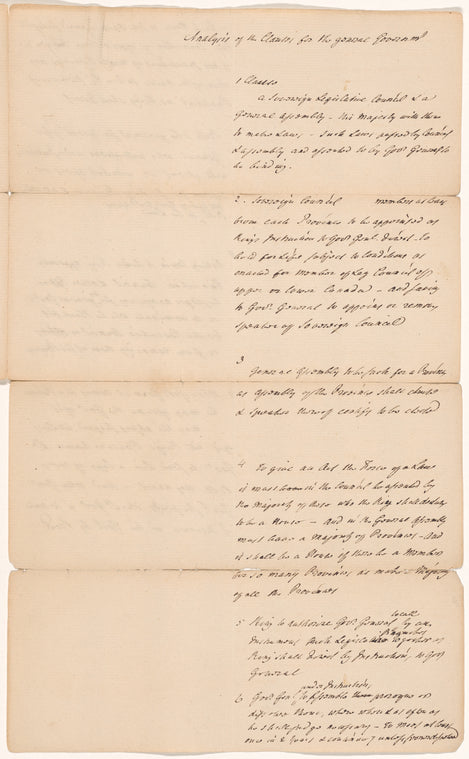 Analysis of the Clauses for the general Governmt
1 Clause
a Sovereign Legislative Council & a
General Assembly - His Majesty with them
to make Laws - Such Laws passed by Council
& Assembly and assented to by Govr General to
be binding.
2. Sovereign Council members at least
from each Province to be appointed as
Kings Instruction to Govr Genl. direct - to
hold for Life subject to Conditions as
enacted for Member of Leg Council of
upper or lower Canada - and saving
to Govr General to appoint or remove
speaker of Sovereign Council
3
General Assembly to be such for a Province
as Assembly of the Province shall choose
& Speaker thereof certify to be chose
4 To give an Act the Force of a Law
it must have in the Council be assented by
the Majority of those who the King shall declare
to be a House - And in the General Assembly
must have a Majority of Provinces - And
it shall be a House if there be a Member
for so many Provinces as make a Majority
of all the Provinces
5 King to authorize Govr General by an
Instrument to Legislature
King shall direct by Instruction, to Govr
General
and or Instruction,
6 Govr Genl to Assemble prorogue or
dissolve them, where when & as often as
he shall judge necessary - To meet at least
once in 2 Years & continue 7 unless sooner dissolved